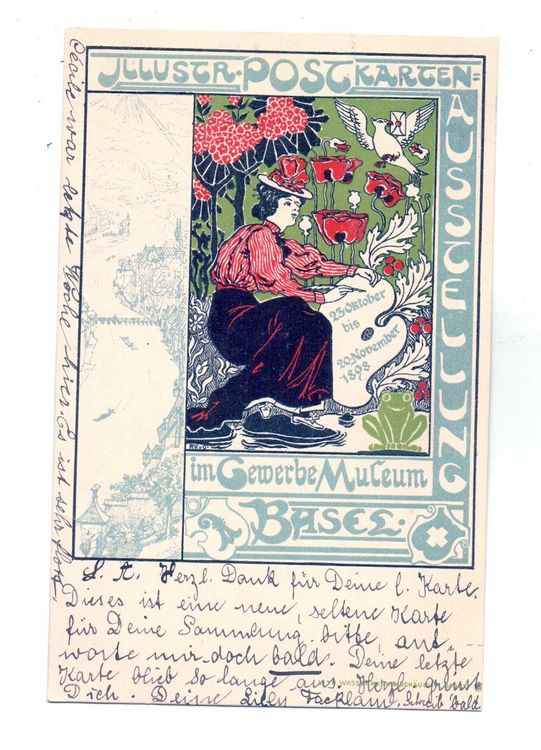 ILLUSTR. POSTKARTEN=
AUSSTELLUNG
23. Oktober
bis
20. November
1898
im Gewerbe Museum
BASEL.
L. A. Herzl. Dank für Deine l. Karte.
Dieses ist eine neue, seltene Karte
für Deine Sammlung. bitte, ant-
worte mir doch bald. Deine letzte
Karte blieb so lange aus. Herzl. grüsst
Dich. Deine Lilly Schreib bald
Cécile war letzte Woche hier. Es ist sehr